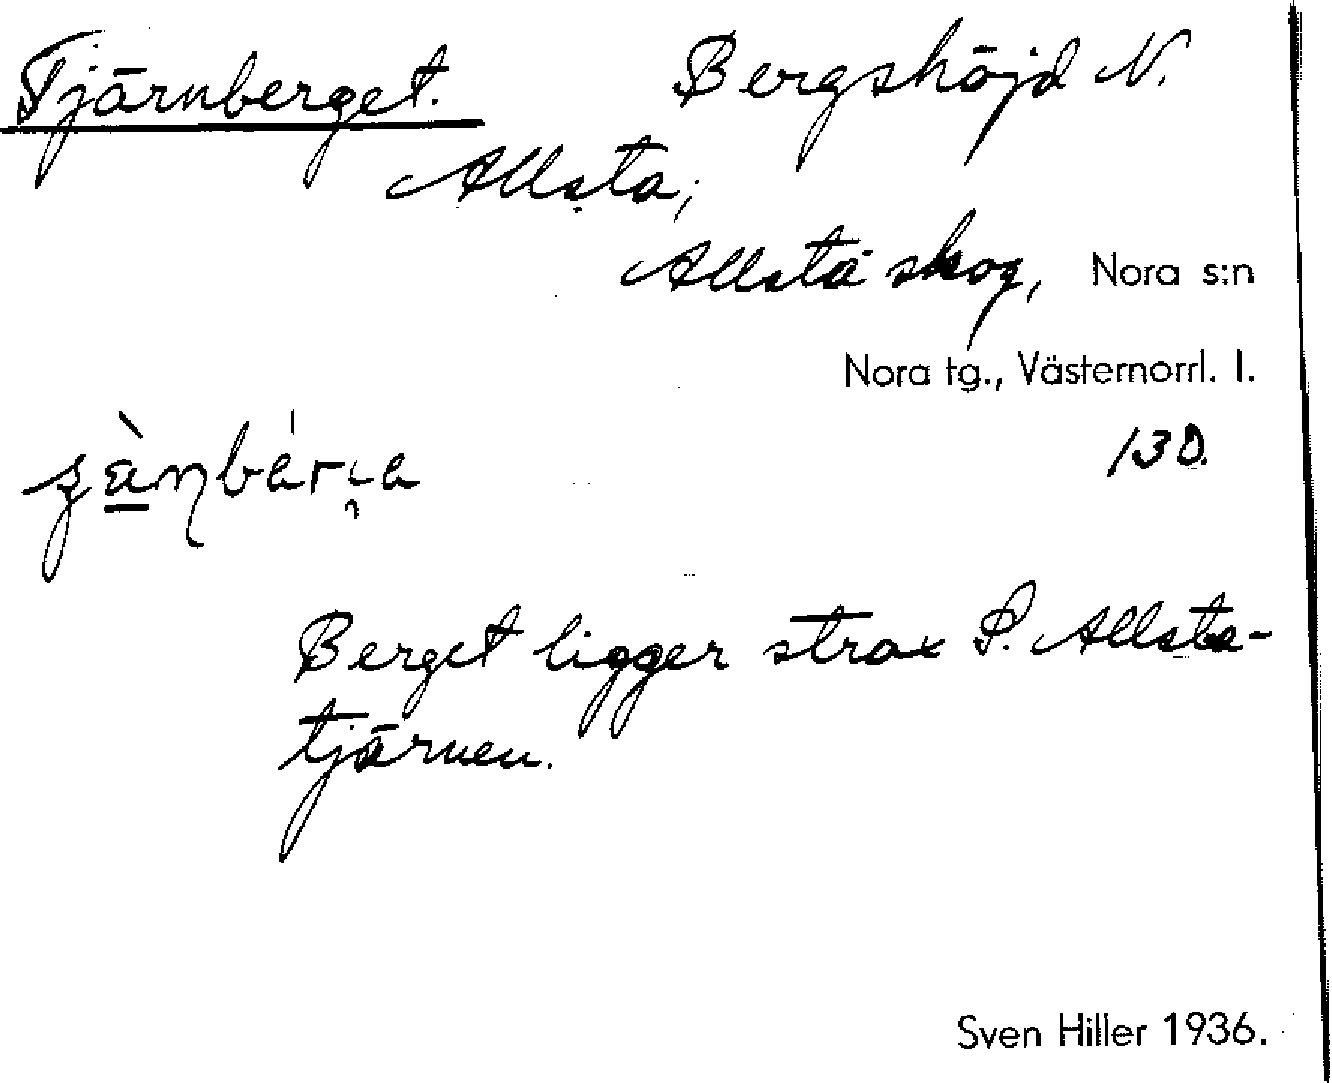 Tjärnberget. Bergshöjd N.
Allsta,
Allsta skog, Nora s:n
Nora tg., Västernorrl. l.
130.
Berget ligger strax S. Allsta-
tjärnen.
Sven Hiller 1936.